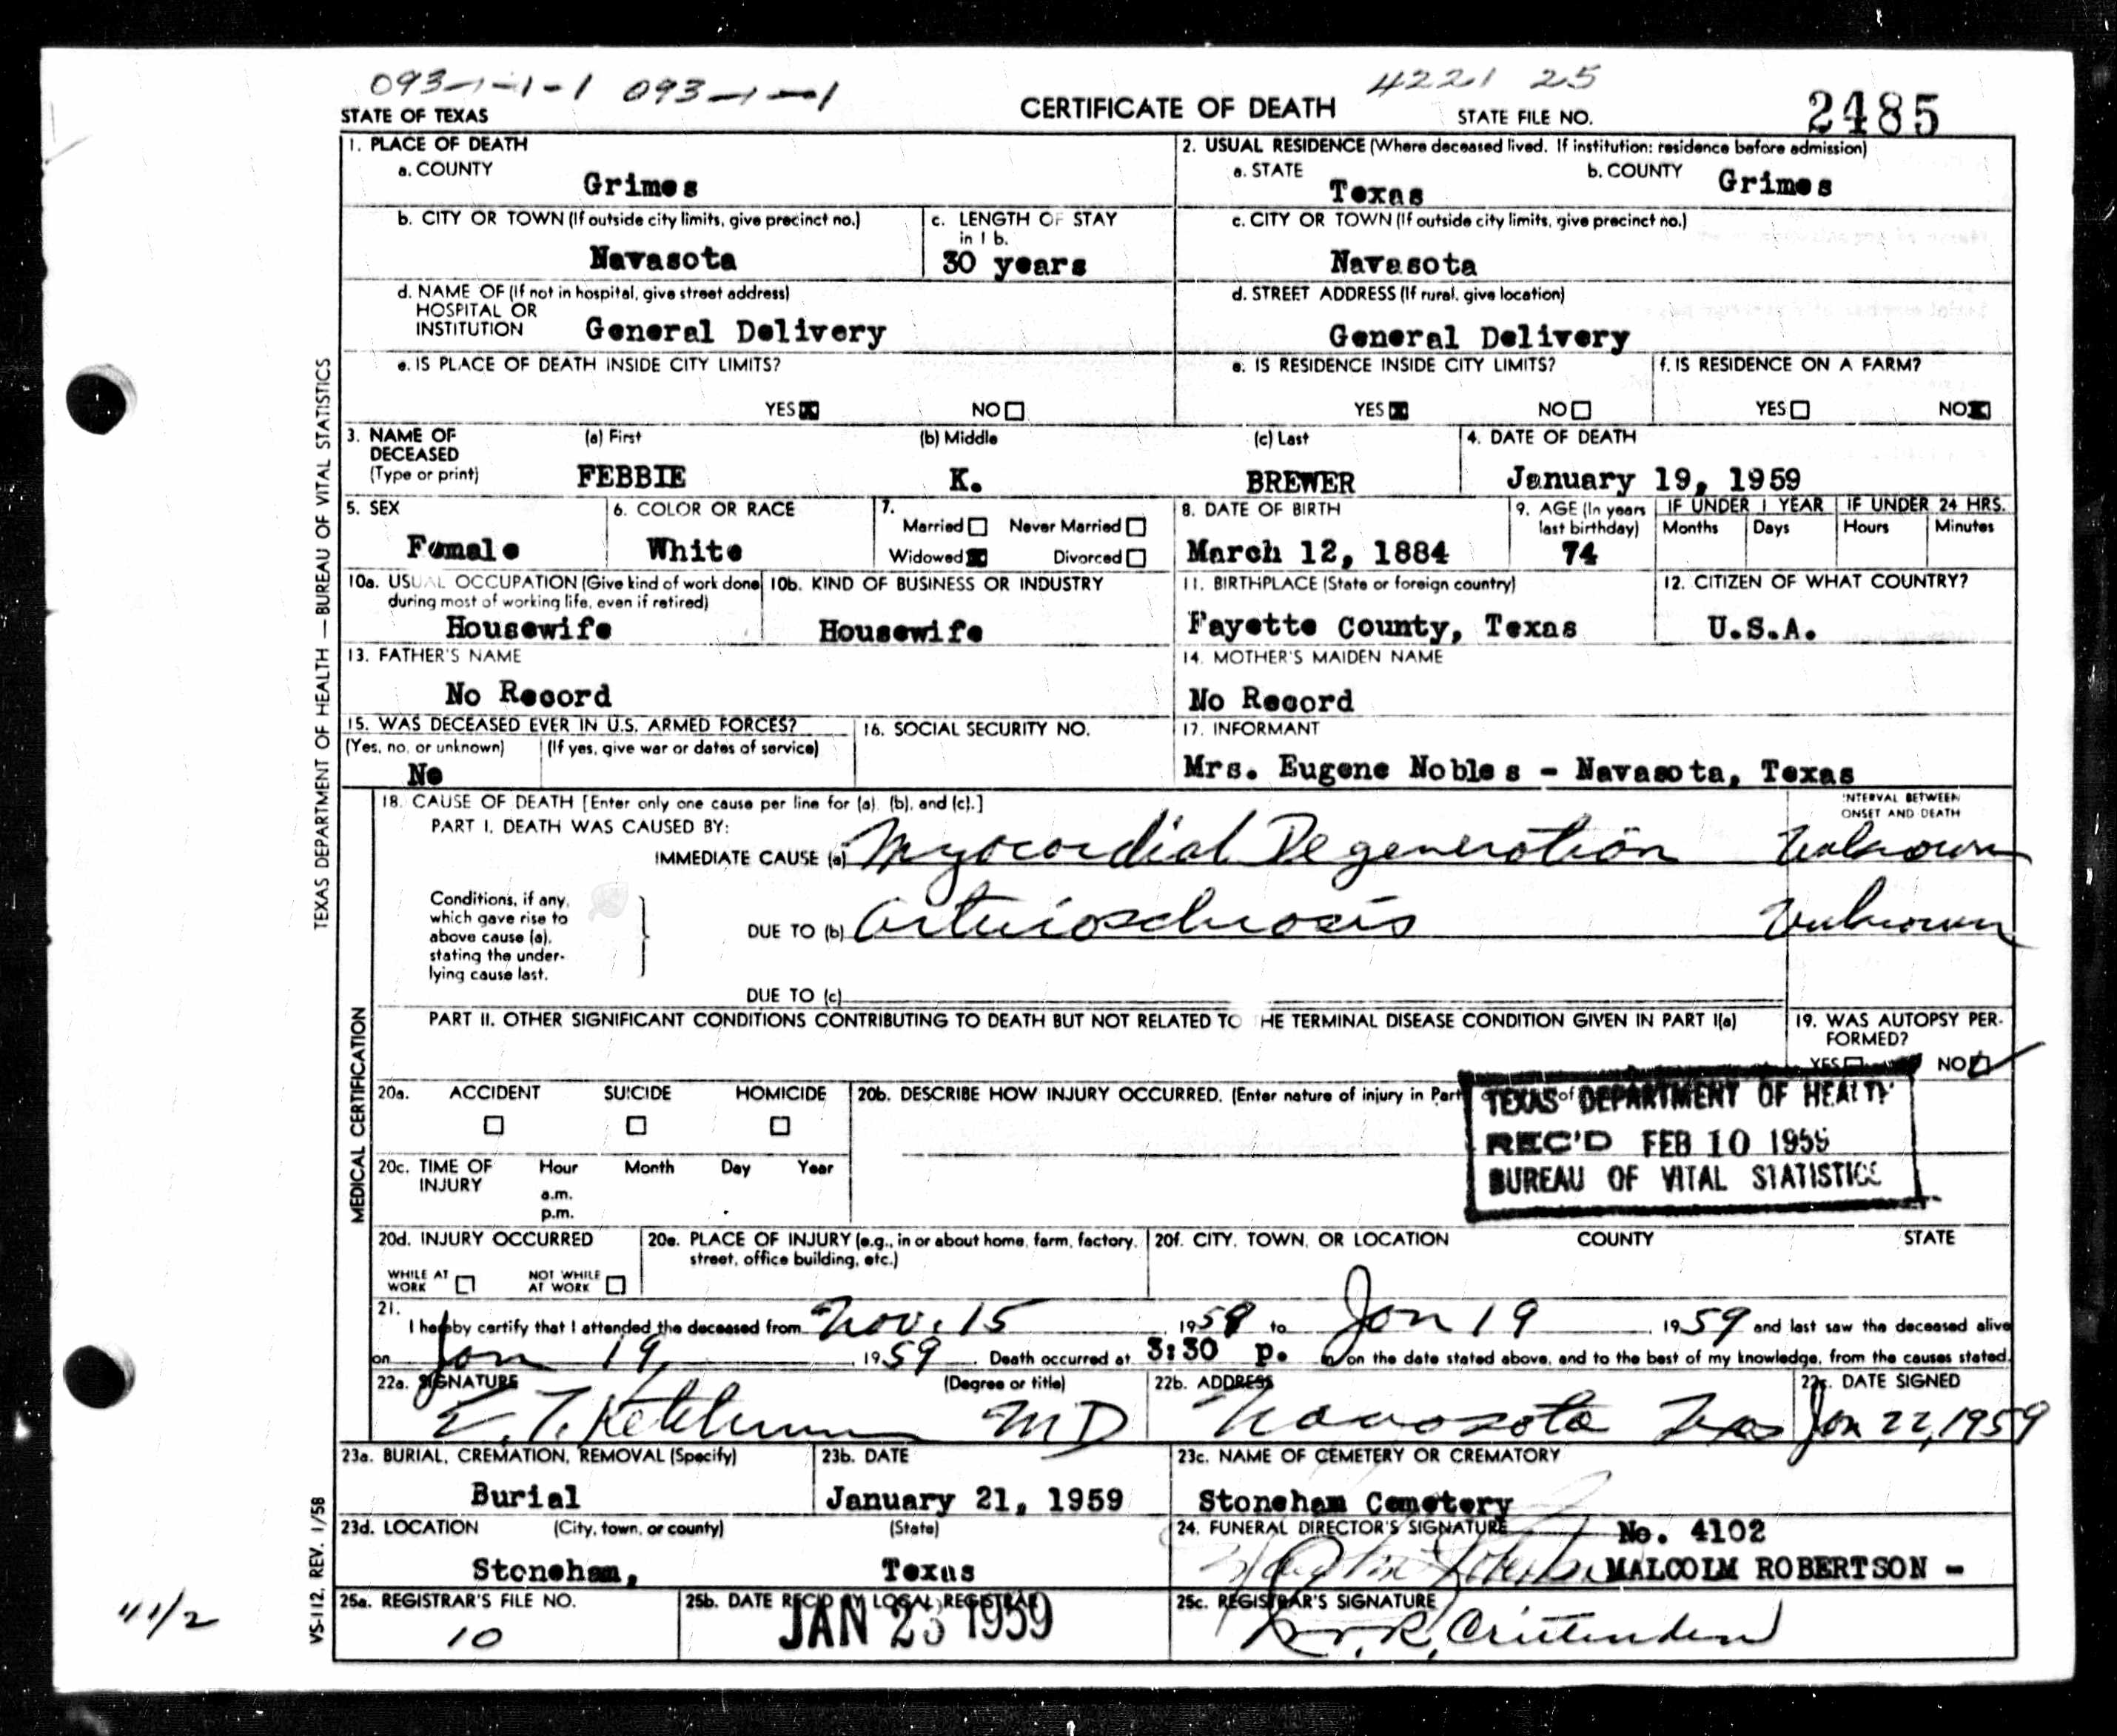 093-1-1-1 093-1-1 4221 25
STATE OF TEXAS CERTIFICATE OF DEATH STATE FILE NO. 2485
1. PLACE OF DEATH
a. COUNTY Grimes
2. USUAL RESIDENCE (Where deceased lived. If institution: residence before admission)
a. STATE Texas b. COUNTY Grimes
b. CITY OR TOWN (If outside city limits, give precinct no.) Navasota
c. LENGTH OF STAY in 1 b. 30 years
c. CITY OR TOWN (If outside city limits, give precinct no.) Navasota
d. NAME OF (If not in hospital, give street address)
HOSPITAL OR
INSTITUTION General Delivery
d. STREET ADDRESS (If rural, give location)
General Delivery
e. IS PLACE OF DEATH INSIDE CITY LIMITS?
YES NO
e. IS RESIDENCE INSIDE CITY LIMITS?
YES NO
f. IS RESIDENCE ON A FARM?
YES NO
3. NAME OF DECEASED (Type or print)
(a) First (b) Middle (c) Last
FEBBIE K. BREWER
4. DATE OF DEATH
January 19, 1959
5. SEX
Female
6. COLOR OR RACE
White
7.
Married Never Married
Widowed Divorced
8. DATE OF BIRTH
March 12, 1884
9. AGE (In years last birthday)
74
IF UNDER 1 YEAR IF UNDER 24 HRS.
Months Days Hours Minutes
10a. USUAL OCCUPATION (Give kind of work done
during most of working life, even if retired)
Housewife
10b. KIND OF BUSINESS OR INDUSTRY
Housewife
11. BIRTHPLACE (State or foreign country)
Fayette County, Texas
12. CITIZEN OF WHAT COUNTRY?
U.S.A.
13. FATHER'S NAME
No Record
14. MOTHER'S MAIDEN NAME
No Record
15. WAS DECEASED EVER IN U.S. ARMED FORCES?
(Yes, no, or unknown) (If yes, give war or dates of service)
No
16. SOCIAL SECURITY NO.
17. INFORMANT
Mrs. Eugene Nobles - Navasota, Texas
18. CAUSE OF DEATH [Enter only one cause per line for (a), (b), and (c).]
PART I. DEATH WAS CAUSED BY:
INTERVAL BETWEEN
ONSET AND DEATH
IMMEDIATE CAUSE (a) Myocardial Degeneration Unknown
Conditions, if any,
which gave rise to
above cause (a),
stating the under-
lying cause last.
DUE TO (b) Arteriosclerosis Unknown
DUE TO (c)
PART II. OTHER SIGNIFICANT CONDITIONS CONTRIBUTING TO DEATH BUT NOT RELATED TO HE TERMINAL DISEASE CONDITION GIVEN IN PART I(a)
19. WAS AUTOPSY PER-
FORMED?
YES NO
20a. ACCIDENT SUICIDE HOMICIDE
20b. DESCRIBE HOW INJURY OCCURRED. (Enter nature of injury in Part
TEXAS DEPARTMENT OF HEALTH
REC'D FEB 10 1959
BUREAU OF VITAL STATISTICS
20c. TIME OF INJURY
Hour Month Day Year
a.m.
p.m.
20d. INJURY OCCURRED
WHILE AT WORK NOT WHILE AT WORK
20e. PLACE OF INJURY (e.g., in or about home, farm, factory,
street, office building, etc.)
20f. CITY, TOWN, OR LOCATION COUNTY STATE
21.
I hereby certify that I attended the deceased from Nov. 15 1958 to Jan 19 1959 and last saw the deceased alive
on Jan 19, 1959. Death occurred at 3:30 p. m on the date stated above, and to the best of my knowledge, from the causes stated.
22a. SIGNATURE (Degree or title)
E. T. Ketchum MD
22b. ADDRESS
Navasota Texas
22c. DATE SIGNED
Jan 22, 1959
23a. BURIAL, CREMATION, REMOVAL (Specify)
Burial
23b. DATE
January 21, 1959
23c. NAME OF CEMETERY OR CREMATORY
Stoneham Cemetery
23d. LOCATION (City, town, or county) (State)
Stoneham, Texas
24. FUNERAL DIRECTOR'S SIGNATURE No. 4102
MALCOLM ROBERTSON -
25a. REGISTRAR'S FILE NO.
10
25b. DATE REC'D BY LOCAL REGISTRAR
JAN 23 1959
25c. REGISTRAR'S SIGNATURE
R. Crittenden
TEXAS DEPARTMENT OF HEALTH — BUREAU OF VITAL STATISTICS
MEDICAL CERTIFICATION
VS-112, REV. 1/58